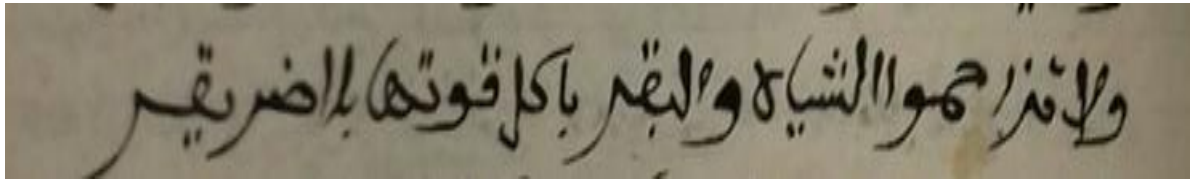 ولا تزاحموا الشياه والبقر باكل قوتها بلا ضر يقر